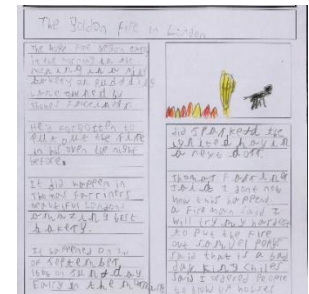 The Golden Fire in London
The huge fire began early
in the morning in the
bakery on pudding
Lane owned by
Thomas Farriner.
forgotten to
put out the fire
in his oven the night
before.
It did happen in
Thomas Farriners
beautiful London
amazing best
bakery.
It happened on
of September
1666 on Sunday
Early in the
did the
ignited hay in
a next door.
Thomas Farring
said I dont now
how this happend
a fireman said I
will try my hardest
to put the fire
out Samuel Pepys
said that is a bad
day King Charles
said I
to blow up houses